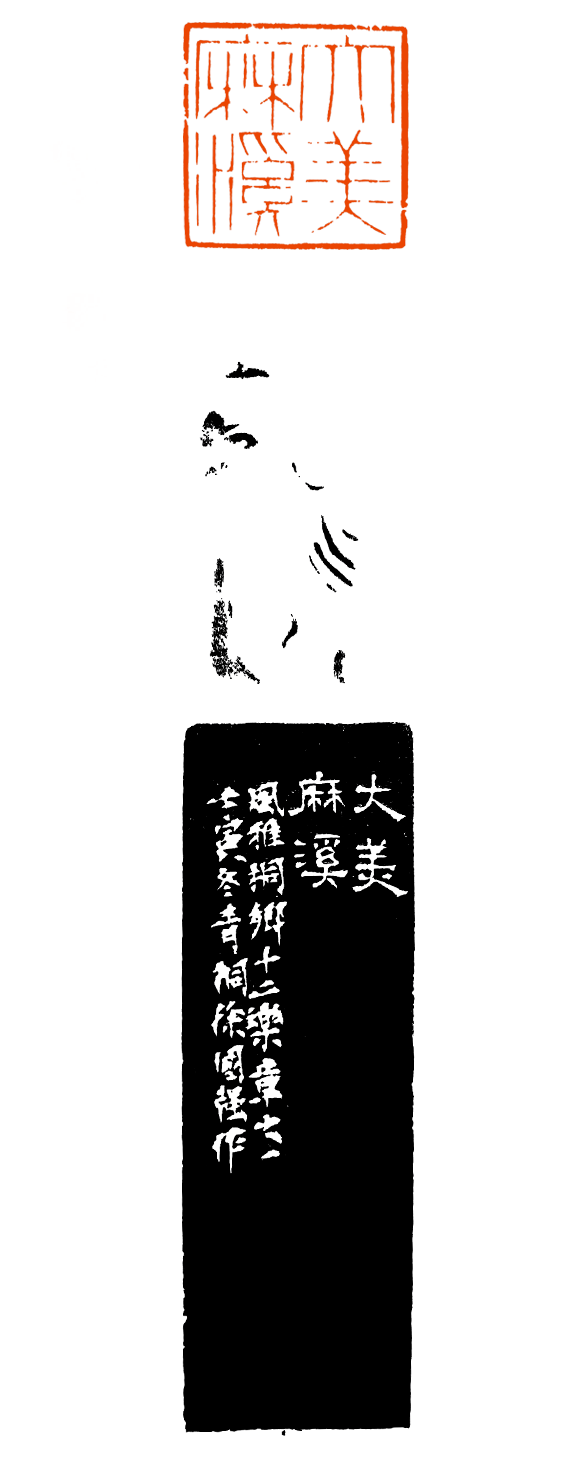 大美
麻溪
大美
麻溪
風雅桐鄉十二樂章之一
壬寅冬青桐徐國強作